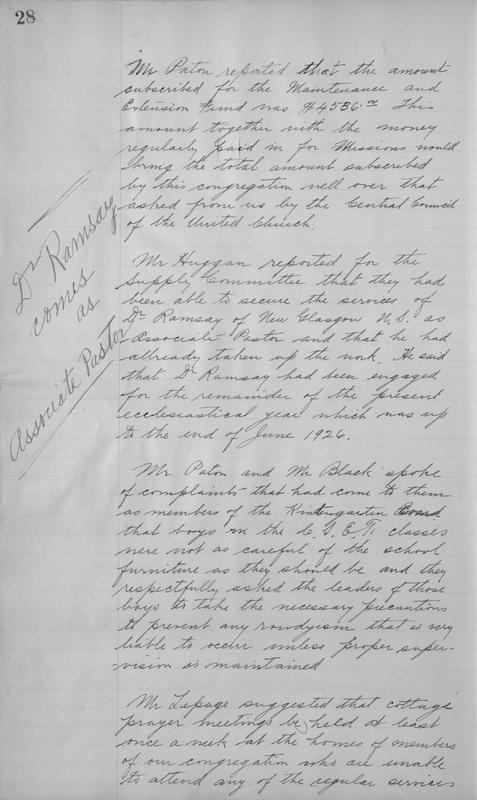 28
Mr Paton reported that the amount
subscribed for the Maintenance and
Extension Fund was $4536.00 This
amount together with the money
regularly paid in for Missions would
bring the total amount subscribed
by this congregation well over that
asked from us by the Central Council
of the United Church.
Dr Ramsay
comes
as
Associate Pastor
Mr Huggan reported for the
Supply Committee that they had
been able to secure the services of
Dr Ramsay of New Glasgow N.S. as
Associate Pastor and that he had
allready taken up the work. He said
that Dr Ramsay had been engaged
for the remainder of the present
ecclesiastical year which was up
to the end of June 1926.
Mr Paton and Mr Black spoke
of complaints that had come to them
as members of the Kintergarten Board
that boys in the C.S.E.T. classes
were not as careful of the school
furniture as they should be and they
respectfully asked the leaders of those
boys to take the necessary precautions
to prevent any rowdyism that is very
liable to occur unless proper super-
vision is maintained
Mr Lepage suggested that cottage
prayer meetings be held at least
once a week at the homes of members
of our congregation who are unable
to attend any of the regular services